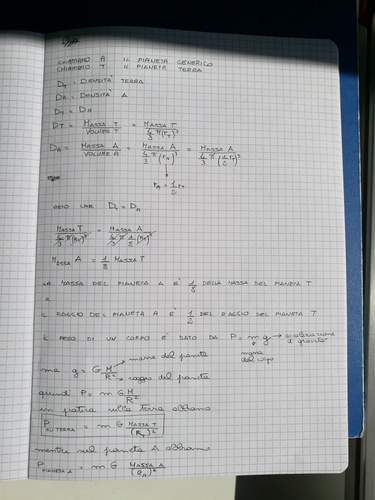 CHIAMIAMO A IL PIANETA GENERICO
CHIAMIAMO T IL PIANETA TERRA
D_T = DENSITÀ TERRA
D_A = DENSITÀ A
D_T = D_A
D_T = MASSA T / VOLUME T = MASSA T / (4/3 π (r_T)³)
D_A = MASSA A / VOLUME A = MASSA A / (4/3 π (r_A)³) = MASSA A / (4/3 π (1/2 r_T)³)
r_A = 1/2 r_T
CHE D_T = D_A
MASSA T / (4/3 π (R_T)³) = MASSA A / (4/3 π 1/8 (R_T)³)
MASSA A = 1/8 MASSA T
LA MASSA DEL PIANETA A È 1/8 DELLA MASSA DEL PIANETA T
E
IL RAGGIO DEL PIANETA A È 1/2 DEL RAGGIO DEL PIANETA T
IL PESO DI UN CORPO È DATO DA P = m g → accelerazione di gravità
massa del corpo
ma g = G M/R² → massa del pianeta
→ raggio del pianeta
quindi P = m G M/R²
in pratica sulla terra abbiamo
P SU TERRA = m G MASSA T / (R_T)²
mentre sul pianeta A abbiamo
P PIANETA A = m G MASSA A / (R_A)²